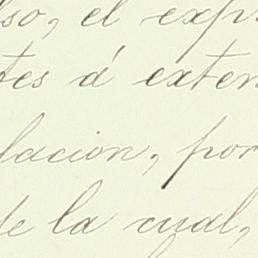 so, el expr
tes á exten
lacion, por
de la cual,